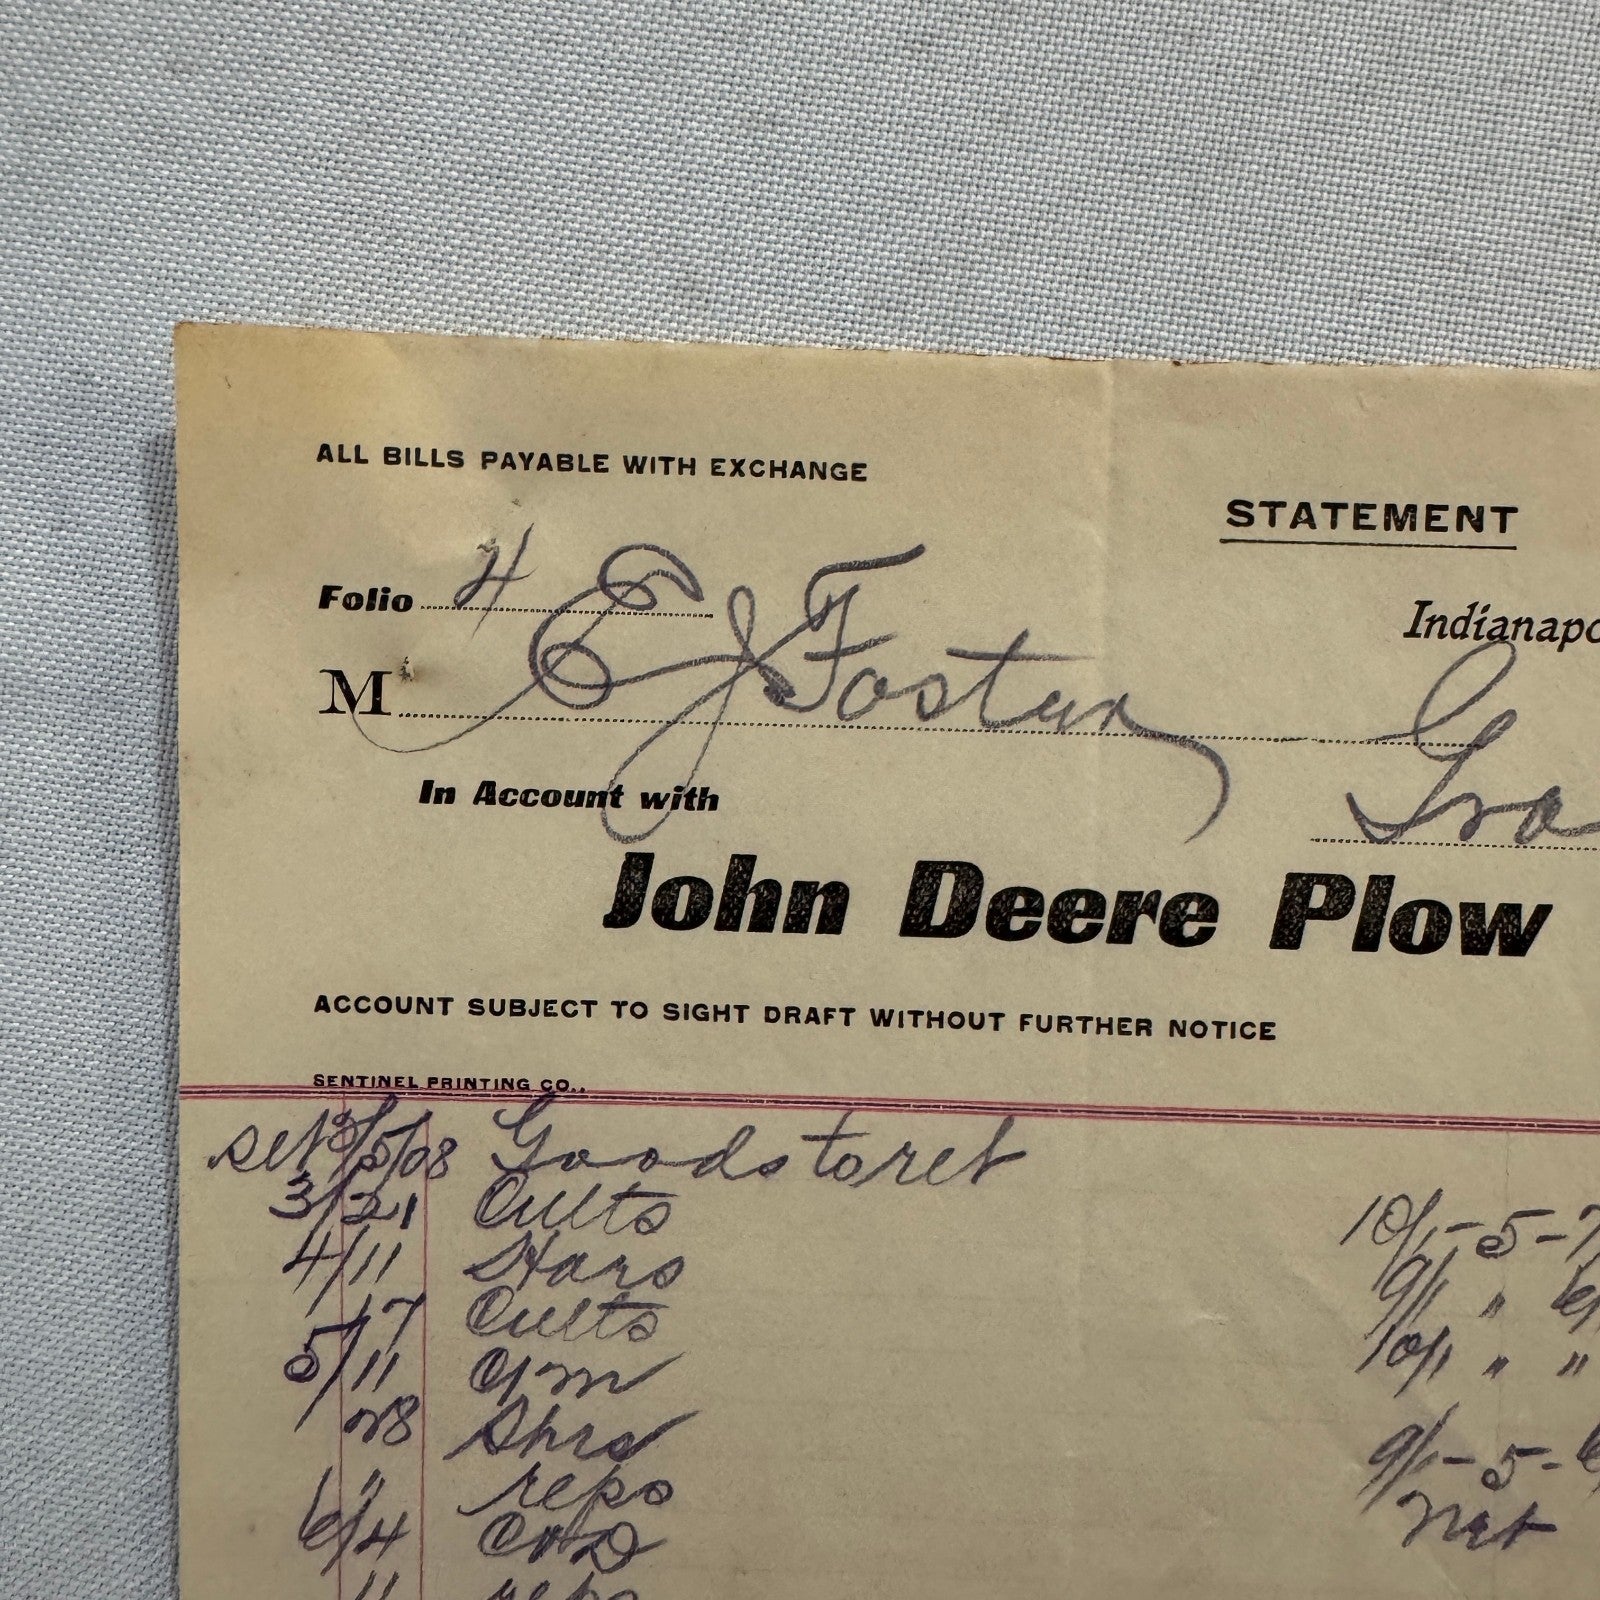 ALL BILLS PAYABLE WITH EXCHANGE
STATEMENT
Folio 4
Indianapo
M E J Foster
Gra
In Account with
John Deere Plow
ACCOUNT SUBJECT TO SIGHT DRAFT WITHOUT FURTHER NOTICE
SENTINEL PRINTING CO.,
/5/08 Goods to
3/21 Cults 10/1-5-7
4/11 9/1 " 6
17 Cults 10/1 " "
5/11
28 9/1-5-6
" repo Net
6/4
11 repo